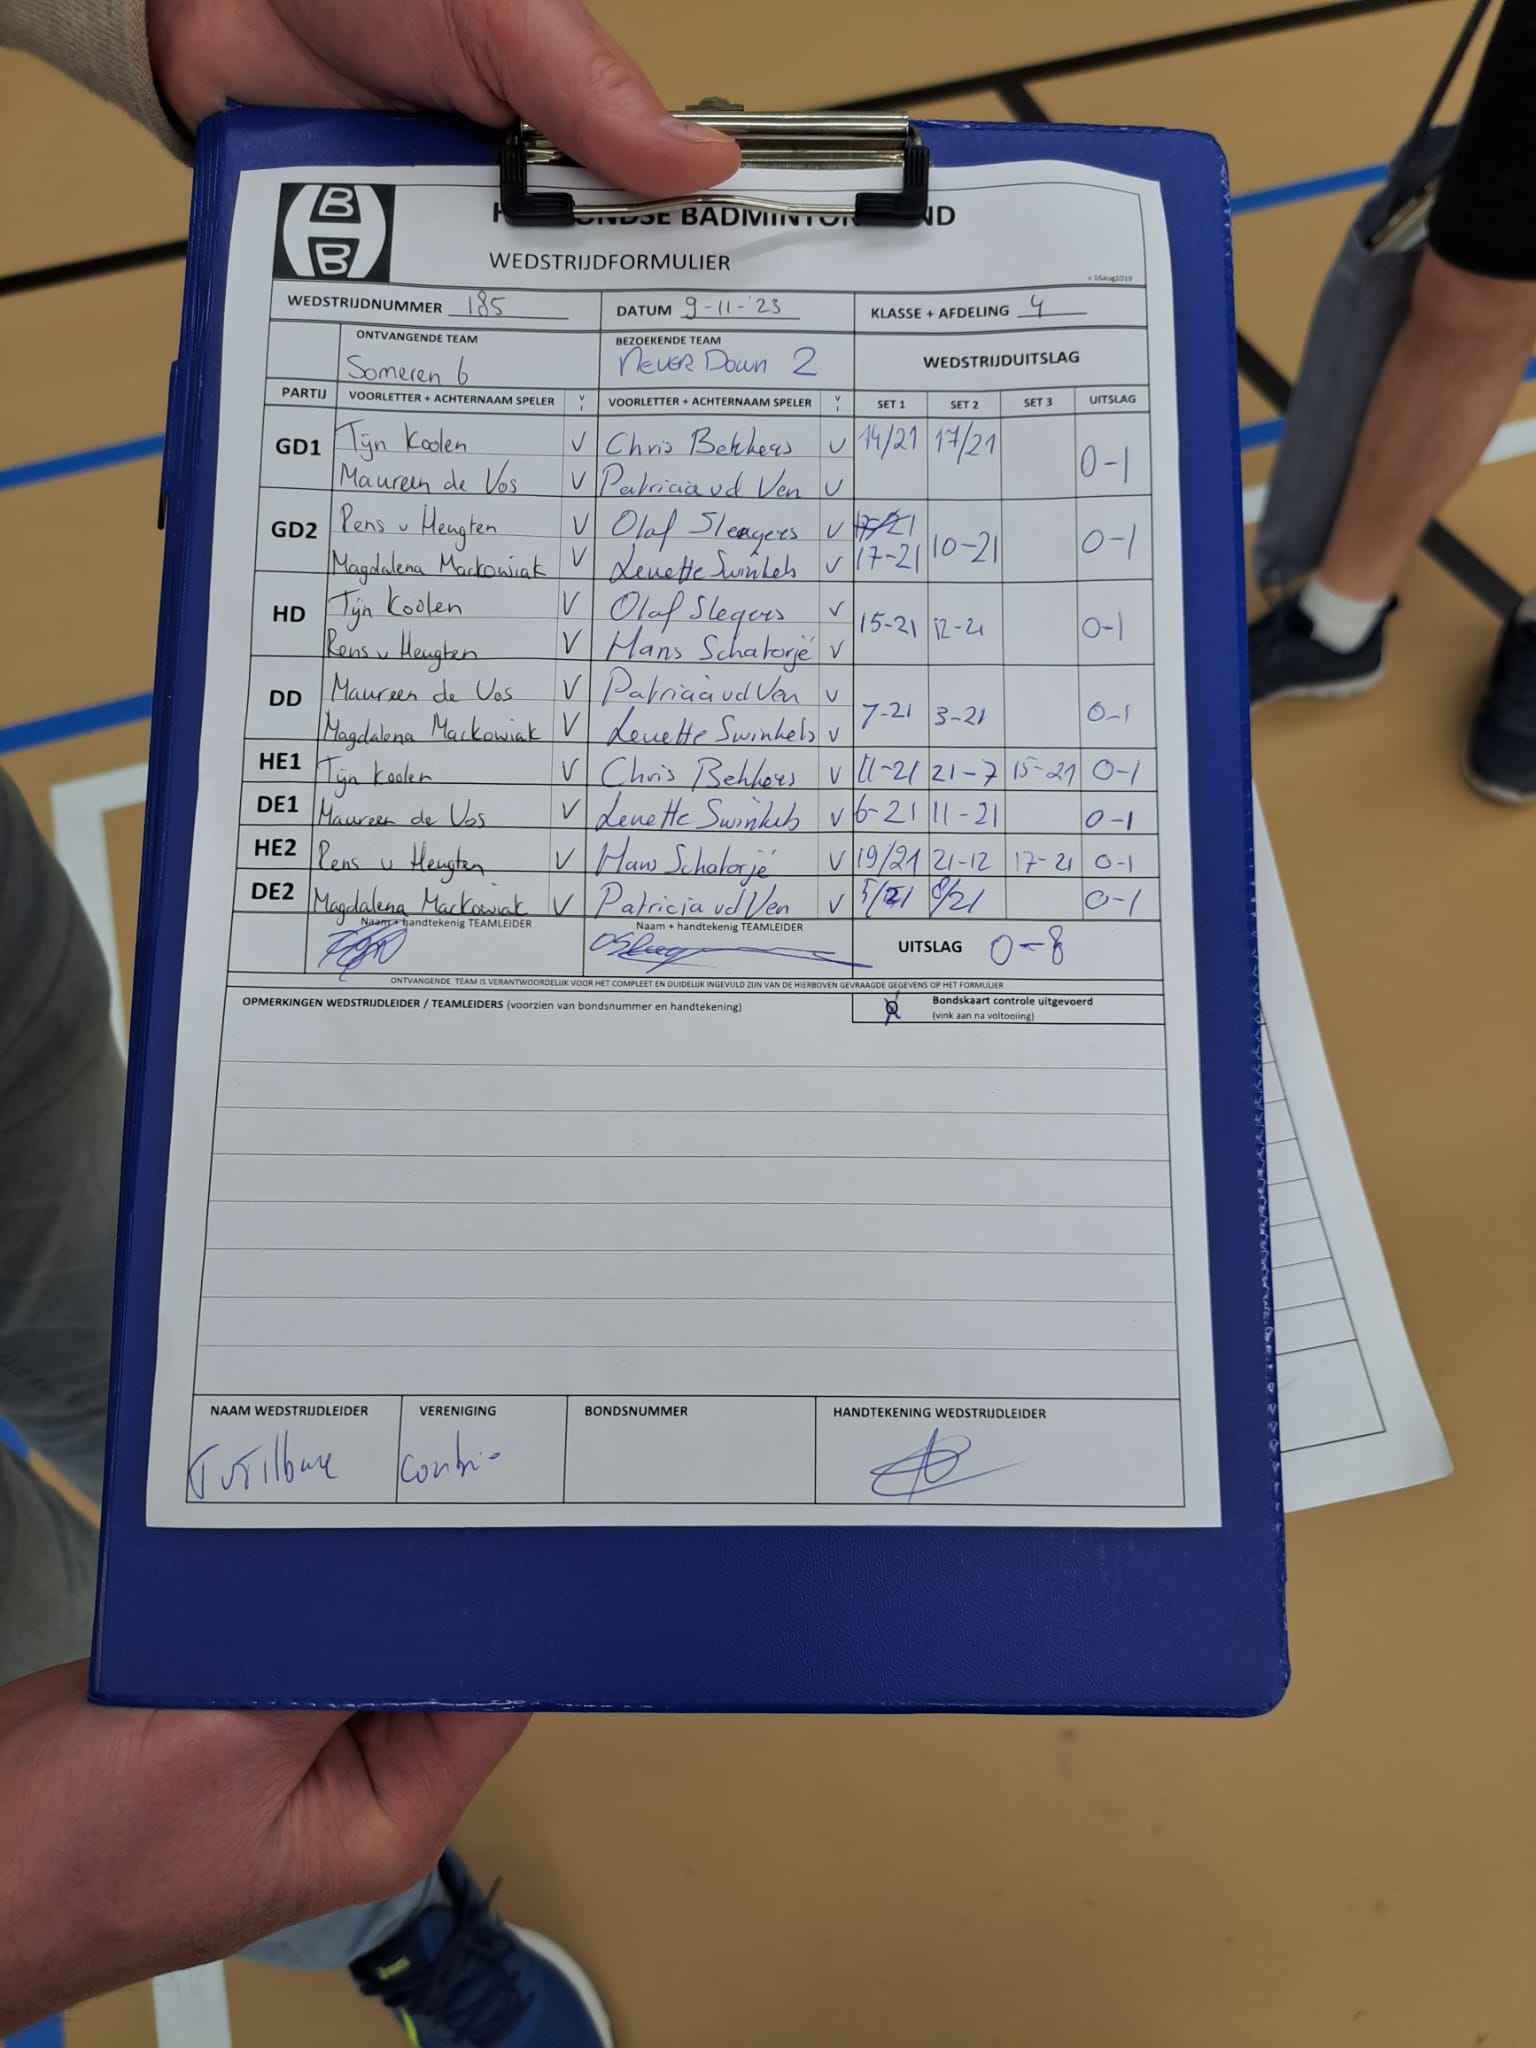 BHB
BADMINTON
WEDSTRIJDFORMULIER
v 16aug2019
WEDSTRIJDNUMMER 185 DATUM 9-11-'23 KLASSE + AFDELING 4
ONTVANGENDE TEAM BEZOEKENDE TEAM WEDSTRIJDUITSLAG
Someren 6 Never Down 2
PARTIJ VOORLETTER + ACHTERNAAM SPELER V VOORLETTER + ACHTERNAAM SPELER V SET 1 SET 2 SET 3 UITSLAG
GD1 Tijn Koolen V Chris Bekkers V 14/21 17/21 0-1
Maureen de Vos V Patricia vd Ven V
GD2 Rens v Heugten V Olaf Sleegers V
Magdalena Mackowiak V Lenette Swinkels V 17-21 10-21 0-1
HD Tijn Koolen V Olaf Slegers V 15-21 12-21 0-1
Rens v Heugten V Hans Schatorjé V
DD Maureen de Vos V Patricia vd Ven V 7-21 3-21 0-1
Magdalena Mackowiak V Lenette Swinkels V
HE1 Tijn Koolen V Chris Bekkers V 11-21 21-7 15-21 0-1
DE1 Maureen de Vos V Lenette Swinkels V 6-21 11-21 0-1
HE2 Rens v Heugten V Hans Schatorjé V 19/21 21-12 17-21 0-1
DE2 Magdalena Mackowiak V Patricia vd Ven V 5/21 8/21 0-1
Naam + handtekenig TEAMLEIDER Naam + handtekenig TEAMLEIDER UITSLAG 0-8
ONTVANGENDE TEAM IS VERANTWOORDELIJK VOOR HET COMPLEET EN DUIDELIJK INGEVULD ZIJN VAN DE HIERBOVEN GEVRAAGDE GEGEVENS OP HET FORMULIER
OPMERKINGEN WEDSTRIJDLEIDER / TEAMLEIDERS (voorzien van bondsnummer en handtekening) Bondskaart controle uitgevoerd
(vink aan na voltooiing)
NAAM WEDSTRIJDLEIDER VERENIGING BONDSNUMMER HANDTEKENING WEDSTRIJDLEIDER